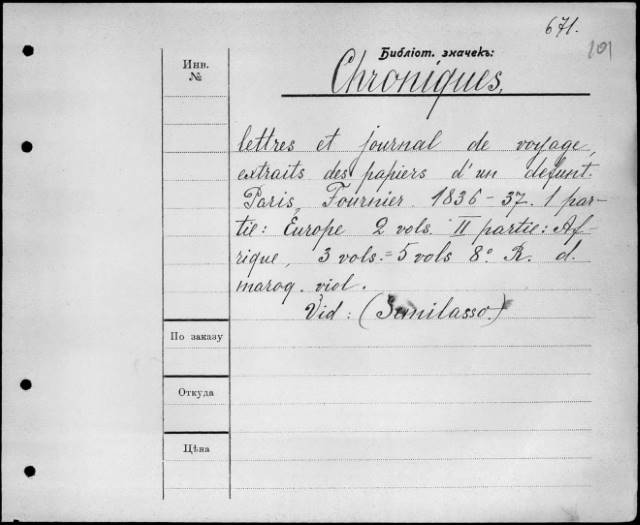 671.
101
Библіот. значекъ:
Инв.
№
Chroniques,
lettres et journal de voyage,
extraits des papiers d'un defunt.
Paris, Fournier. 1836-37. 1 par-
tie: Europe 2 vols. II partie: Af-
rique, 3 vols. = 5 vols 8º R. d.
maroq. viol.
Vid: (Semilasso.)
По заказу
Откуда
Цѣна